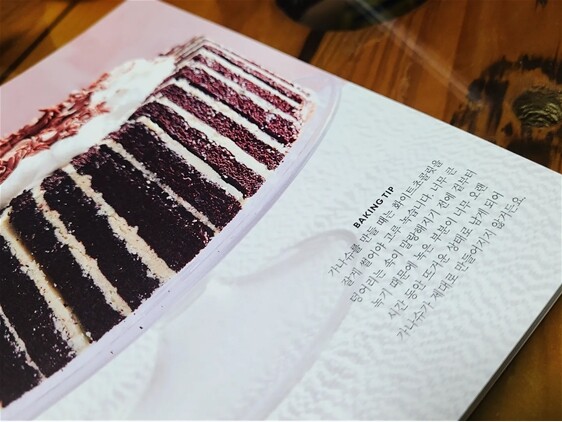 BAKING TIP
가나슈를 만들 때는 화이트초콜릿을
잘게 썰어야 고루 녹습니다. 너무 큰
덩어리는 속이 말랑해지기 전에 겉부터
녹기 때문에 녹은 부분이 너무 오랜
시간 동안 뜨거운 상태로 남게 되어
가나슈가 제대로 만들어지지 않거든요.